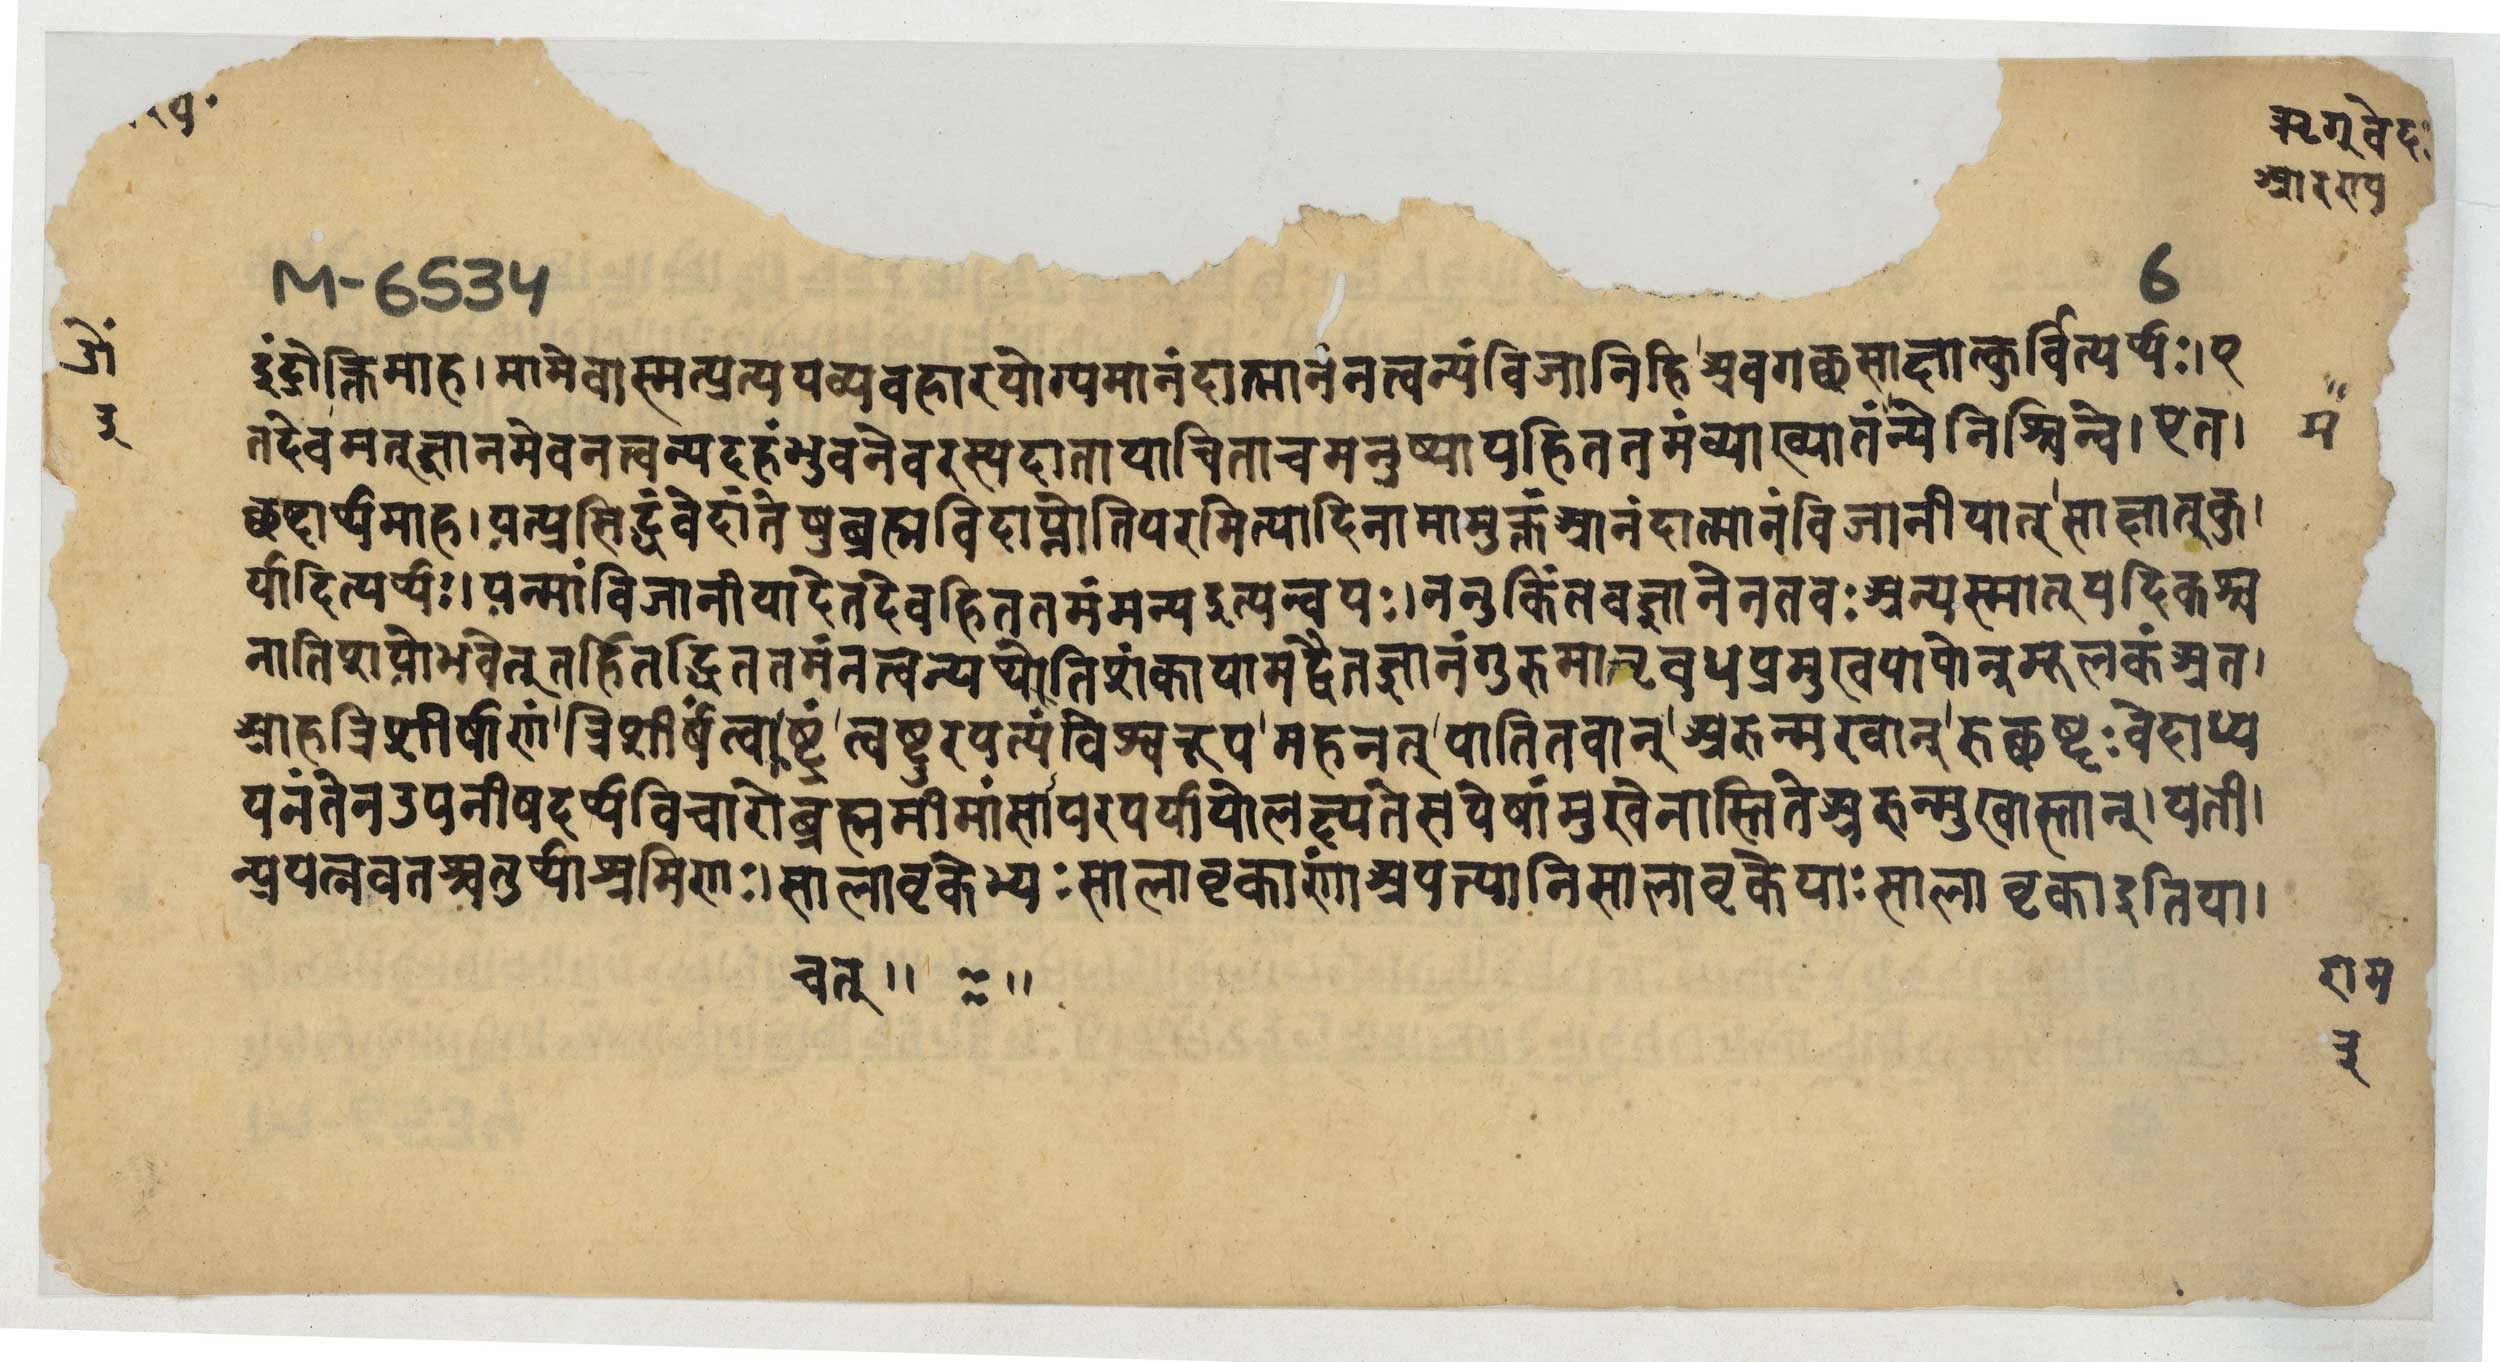 ऋग्वेदः
आरण्य
M-6534
6
ओं
इ
म"
इंद्रोक्तिमाह।मामेवास्मत्प्रत्ययव्यवहारयोग्यमानंदात्मानंनत्वन्यंविजानिहि'अवगच्छसाक्षात्कुर्वित्यर्थः।ए
तदेवमत्ज्ञानमेवनत्वन्यदहंभुवनेवरस्यदातायाचिताचमनुष्यायहिततमंव्याख्यातंन्येनिश्चिन्वे।एत।
च्छब्दार्थमाह।यत्प्रसिद्धंवेदांतेषुब्रह्मविदाप्नोतिपरमित्यादिनामामुक्तंआनंदात्मानंविजानीयात्'साक्षात्कु।
र्यादित्यर्थः।यन्मांविजानीयादेतदेवहिततमंमन्यइत्यन्वयः।ननुकिंतवज्ञानेनतवःअन्यस्मात्यदिकश्च
नातिशयोभवेत्तर्हितद्धिततमंनत्वन्यथेतिशंकायामद्वैतज्ञानंगुरुमातृवधप्रमुखपापोन्मूलकंअत।
आहत्रिशीर्षाणं'त्रिशीर्षंत्वाष्ट्रं'त्वष्टुरपत्यंविश्वरूप'महनत्'पातितवान्'अरुन्मुखान्'रुच्छब्दःवेदाध्य
यनंतेनउपनीषदर्थविचारोब्रह्ममीमांसापरपर्यायोलक्ष्यतेसयेषांमुखेनास्तितेअरुन्मुखास्तान्।यती।
न्प्रयत्नवतश्चतुर्थाश्रमिणः।सालावृकेभ्यःसालावृकाणांअपत्यानिसालावृकेयाःसालावृकाइतिया।
चत्॥ २॥
राम
३